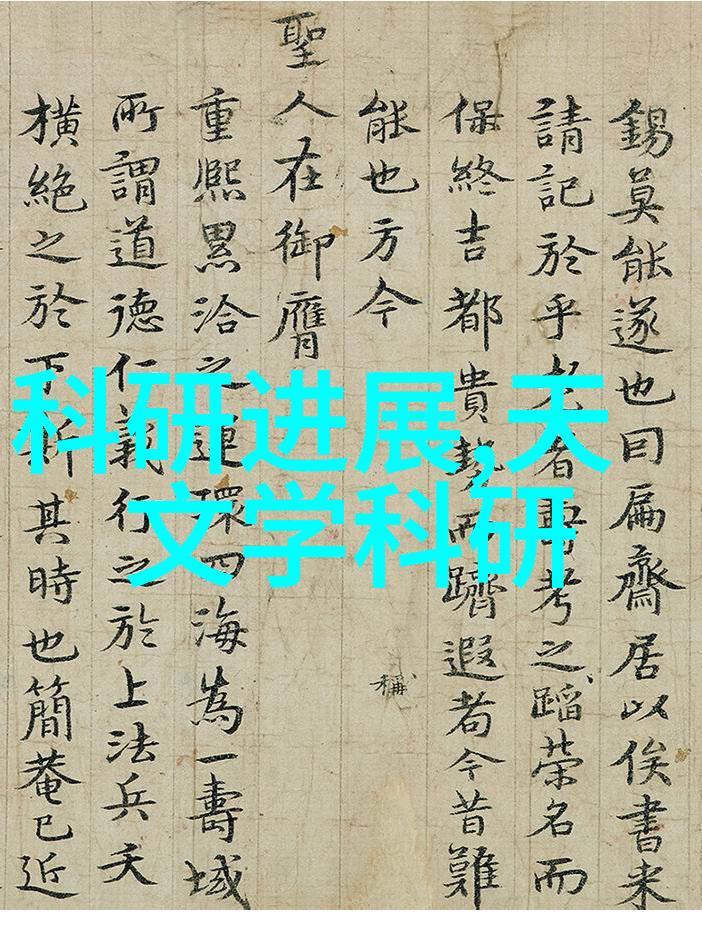 錫莫能遂也曰扁齋居以俟書来
請記於乎者考之蹈荣名而
保終吉都貴勢而躋遐耇今昔難
能也方今
稱
聖人在御膺
重熙累洽之運環四海為一壽域
所謂道德仁義行之於上法兵夭
横絶之於下斯其時也簡菴已近
科研进展,天
文学科研